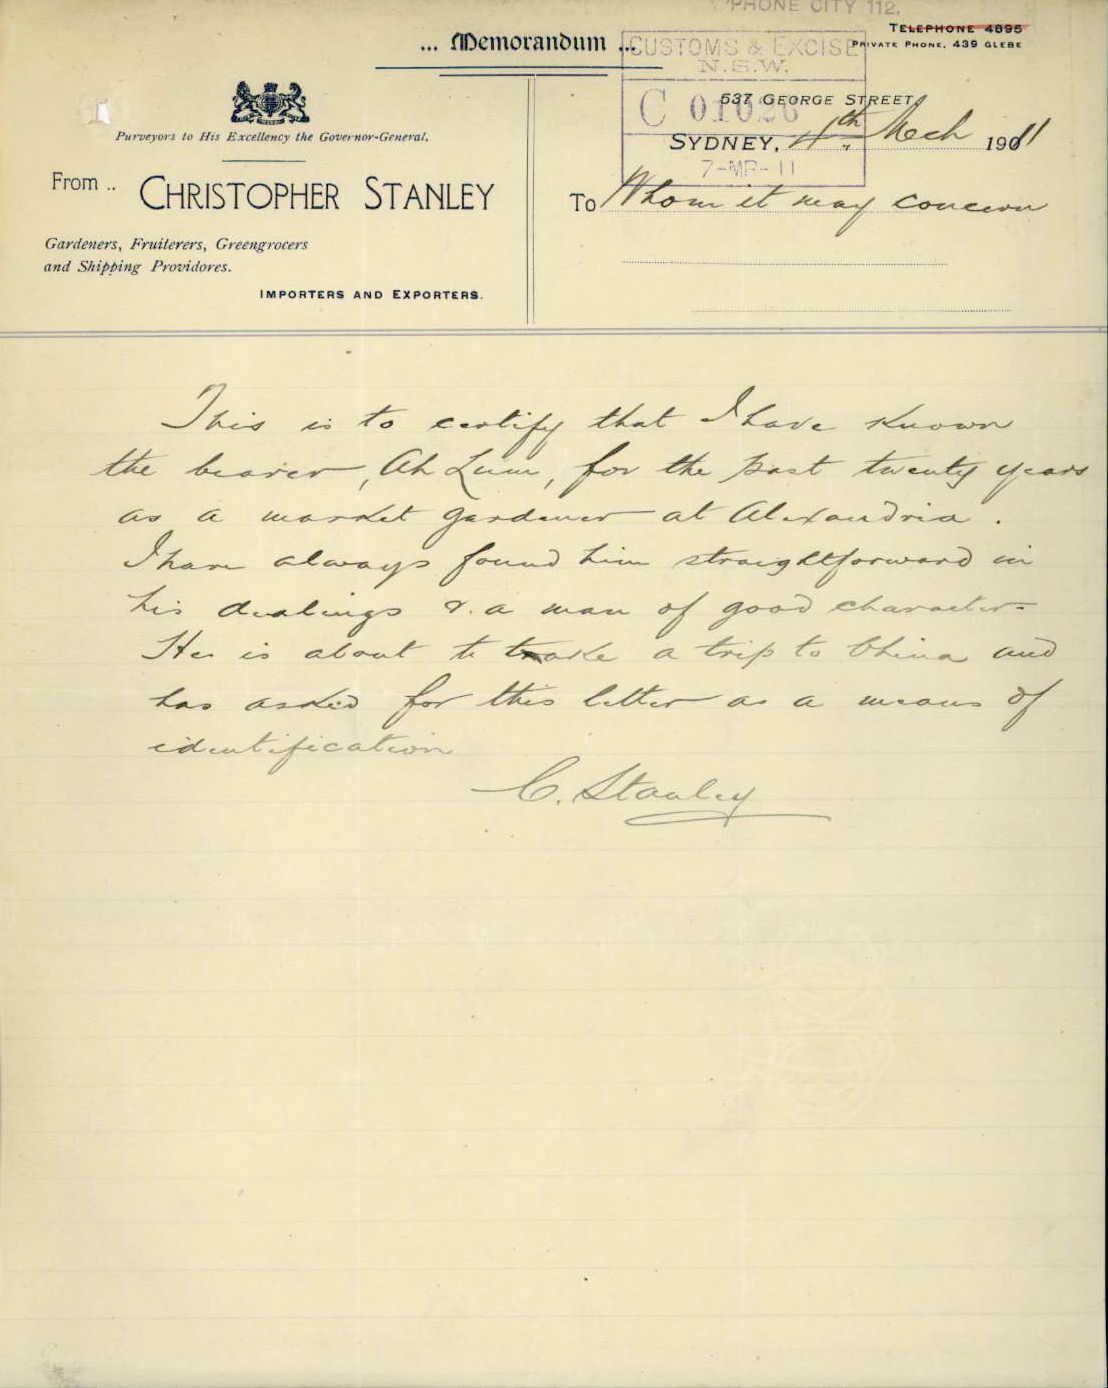 'PHONE CITY 112.
... Memorandum ...
TELEPHONE 4695
PRIVATE PHONE, 439 GLEBE
CUSTOMS & EXCISE
N.S.W.
C 01026
7-MR-11
537 GEORGE STREET,
SYDNEY, 4th Mch 1911
Purveyors to His Excellency the Governor-General.
From .. CHRISTOPHER STANLEY
To Whom it may concern
Gardeners, Fruiterers, Greengrocers
and Shipping Providores.
IMPORTERS AND EXPORTERS.
This is to certify that I have known
the bearer, Ah Lum, for the past twenty years
as a market gardener at Alexandria.
I have always found him straightforward in
his dealings & a man of good character.
He is about to take a trip to China and
has asked for this letter as a means of
identification
C. Stanley